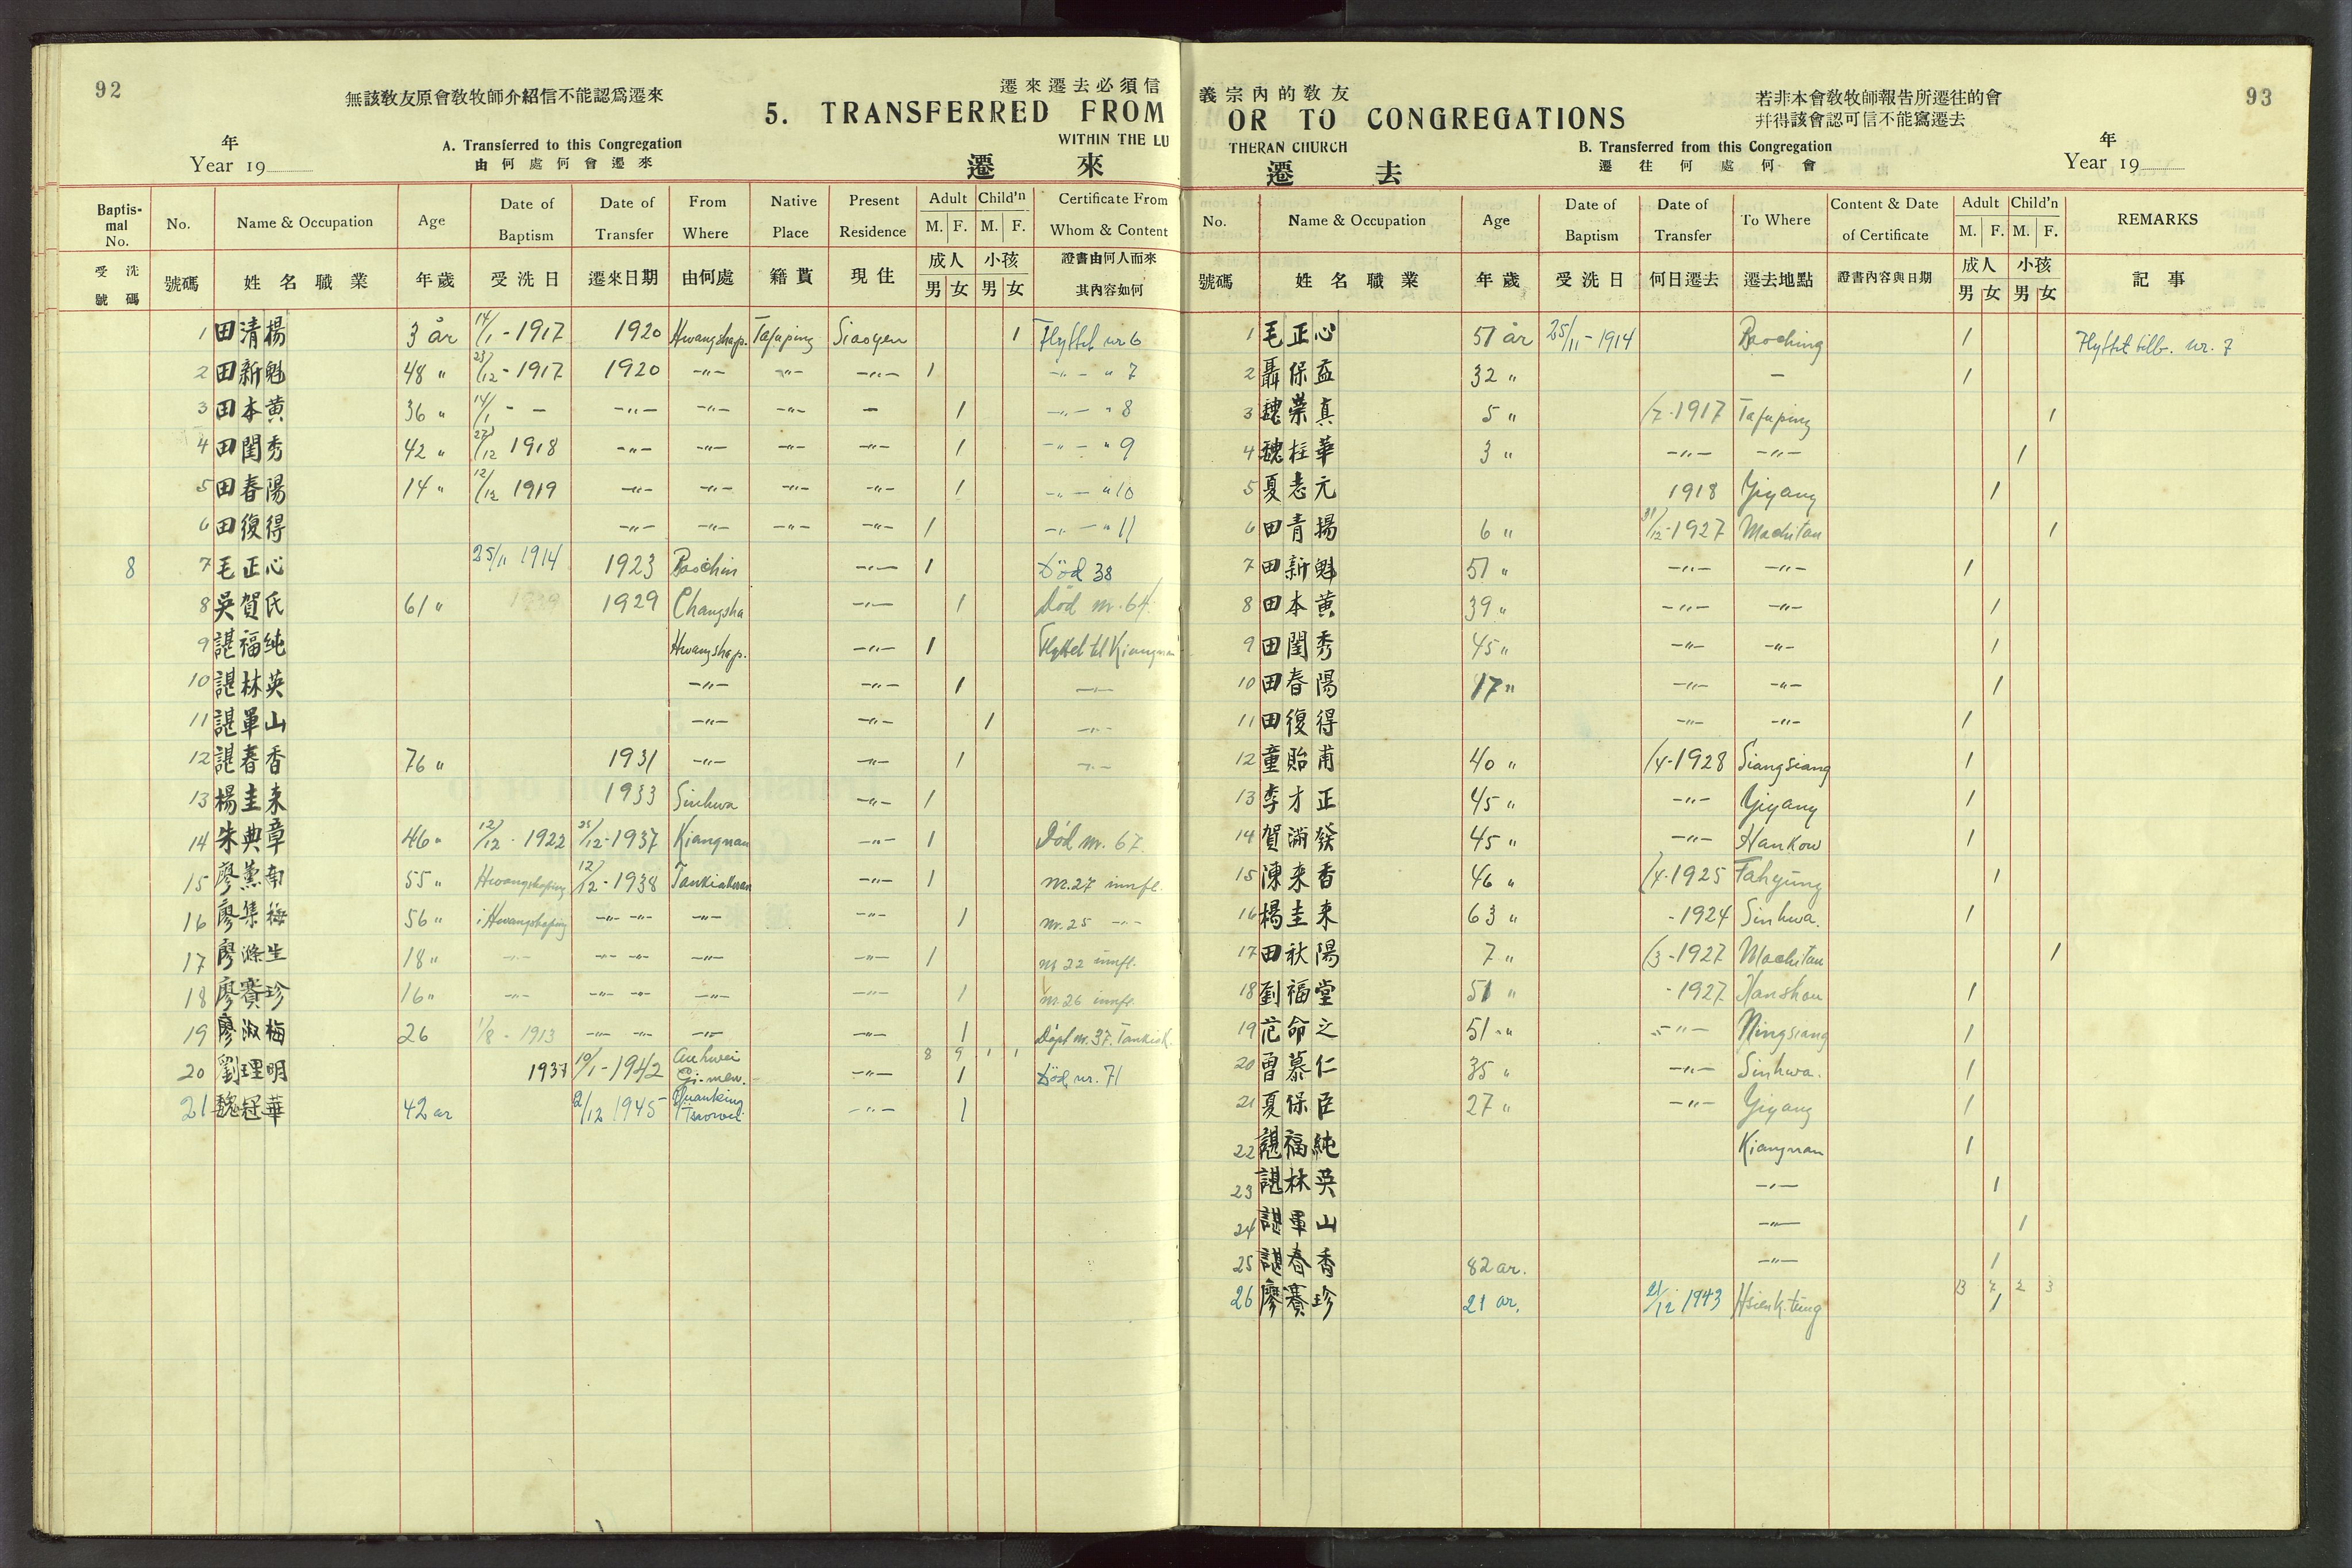 92
無該教友原會教牧師介紹信不能認爲遷來
遷來遷去必須信
5. TRANSFERRED FROM
WITHIN THE LU
年
Year 19
A. Transferred to this Congregation
由何處何會遷來
遷 來
Baptismal No. No. Name & Occupation Age Date of Baptism Date of Transfer From Where Native Place Present Residence Adult M. F. Child'n M. F. Certificate From Whom & Content
受洗號碼 號碼 姓名職業 年歲 受洗日 遷來日期 由何處 籍貫 現住 成人 男 女 小孩 男 女 證書由何人而來其內容如何
1 田清揚 3 år 14/1 - 1917 1920 Hwangshap. Tafuping Siaoyen 1 Flyttet nr 6
2 田新魁 48 " 23/12 - 1917 1920 -"- -"- -"- 1 -"- " 7
3 田本黄 36 " 14/1 - - -"- -"- -"- - 1 -"- " 8
4 田閨秀 42 " 23/12 1918 -"- -"- -"- -"- 1 -"- " 9
5 田春陽 14 " 12/12 1919 -"- -"- -"- -"- 1 -"- " 10
6 田復得 -"- -"- -"- -"- 1 -"- " 11
8 7 毛正心 25/11 1914 1923 Baochin -"- 1 Död 38
8 吳賀氏 61 " 1929 Changsha -"- 1 Död nr. 64.
9 諶福純 Hwangshap. -"- 1 Flyttet til Kiangnan
10 諶林英 -"- -"- 1 -"-
11 諶軍山 -"- -"- 1 -"-
12 諶春香 76 " 1931 -"- -"- 1 -"-
13 楊圭来 1933 Sinhwa -"- 1
14 朱典章 46 " 12/12 - 1922 25/12 - 1937 Kiangnan -"- 1 Död nr. 67.
15 廖薰南 55 " Hwangshaping 12/12 - 1938 -"- 1 nr. 27 innfl.
16 廖集梅 56 " i Hwangshaping -"- -"- -"- -"- 1 nr. 25 -"-
17 廖滌生 18 " -"- -"- -"- -"- -"- 1 nr 22 innfl.
18 廖賽珍 16 " -"- -"- -"- -"- -"- 1 nr. 26 innfl.
19 廖淑梅 26 1/8 - 1913 -"- -"- -"- -"- 1 Döpt nr. 37.
8 9 1 1
20 劉理明 1937 10/1 - 1942 -"- 1 Död nr. 71
21 魏冠華 42 ar 2/12 1945 -"- 1
義宗內的教友
OR TO CONGREGATIONS
THERAN CHURCH
遷 去
若非本會教牧師報告所遷往的會
幷得該會認可信不能寫遷去
93
B. Transferred from this Congregation
遷往何處何會
年
Year 19
No. Name & Occupation Age Date of Baptism Date of Transfer To Where Content & Date of Certificate Adult M. F. Child'n M. F. REMARKS
號碼 姓名職業 年歲 受洗日 何日遷去 遷去地點 證書內容與日期 成人 男 女 小孩 男 女 記事
1 毛正心 51 år 25/11 - 1914 Baoching 1 Flyttet tilb. nr. 7
2 聶保益 32 " - 1
3 魏榮真 5 " /7 - 1917 Tafuping 1
4 魏柱華 3 " -"- -"- 1
5 夏志元 1918 Yiyang 1
6 田青揚 6 " 31/12 - 1927 Machitan 1
7 田新魁 51 " -"- -"- 1
8 田本黄 39 " -"- -"- 1
9 田閨秀 45 " -"- -"- 1
10 田春陽 17 " -"- -"- 1
11 田復得 -"- -"- 1
12 童貽甫 40 " /4 - 1928 Siangsiang 1
13 李才正 45 " -"- Yiyang 1
14 賀滿發 45 " -"- Hankow 1
15 陳来香 46 " /4 - 1925 1
16 楊圭来 63 " - 1924 Sinhwa. 1
17 田秋陽 7 " /3 - 1927 Machitan 1
18 劉福堂 51 " - 1927 Hanshou 1
19 范命之 51 " -"- Ningsiang 1
20 曾慕仁 35 " -"- Sinhwa. 1
21 夏保臣 27 " -"- Yiyang 1
22 諶福純 Kiangnan 1
23 諶林英 -"- 1
24 諶軍山 -"- 1
25 諶春香 82 ar. -"- 1
13 7 2 3
26 廖賽珍 21 ar. 21/12 1943 1